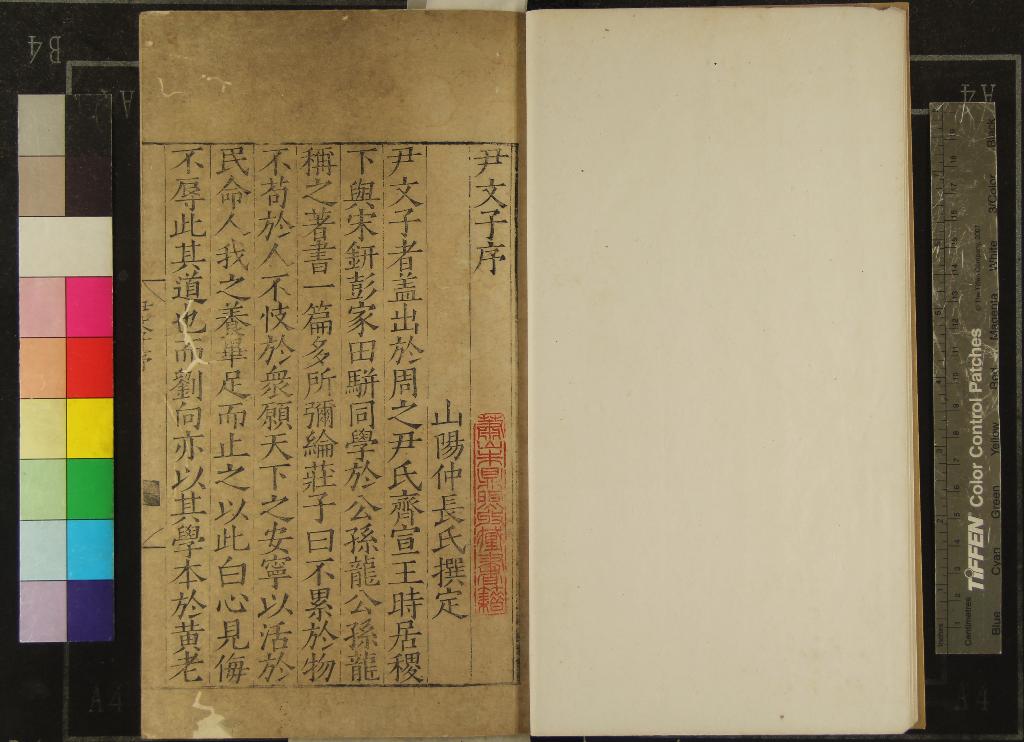 尹文子序
山陽仲長氏撰定
尹文子者盖出於周之尹氏齊宣王時居稷
下與宋鈃彭蒙田駢同學於公孫龍公孫龍
稱之著書一篇多所彌綸莊子曰不累於物
不苟於人不忮於衆願天下之安寧以活於
民命人我之養畢足而止之以此白心見侮
不辱此其道也而劉向亦以其學本於黄老
TIFFEN Color Control Patches
© The Tiffen Company, 2007
Blue Cyan Green Yellow Red Magenta White 3/Color Black
Inches
Centimetres
B4
A4
A4
A4